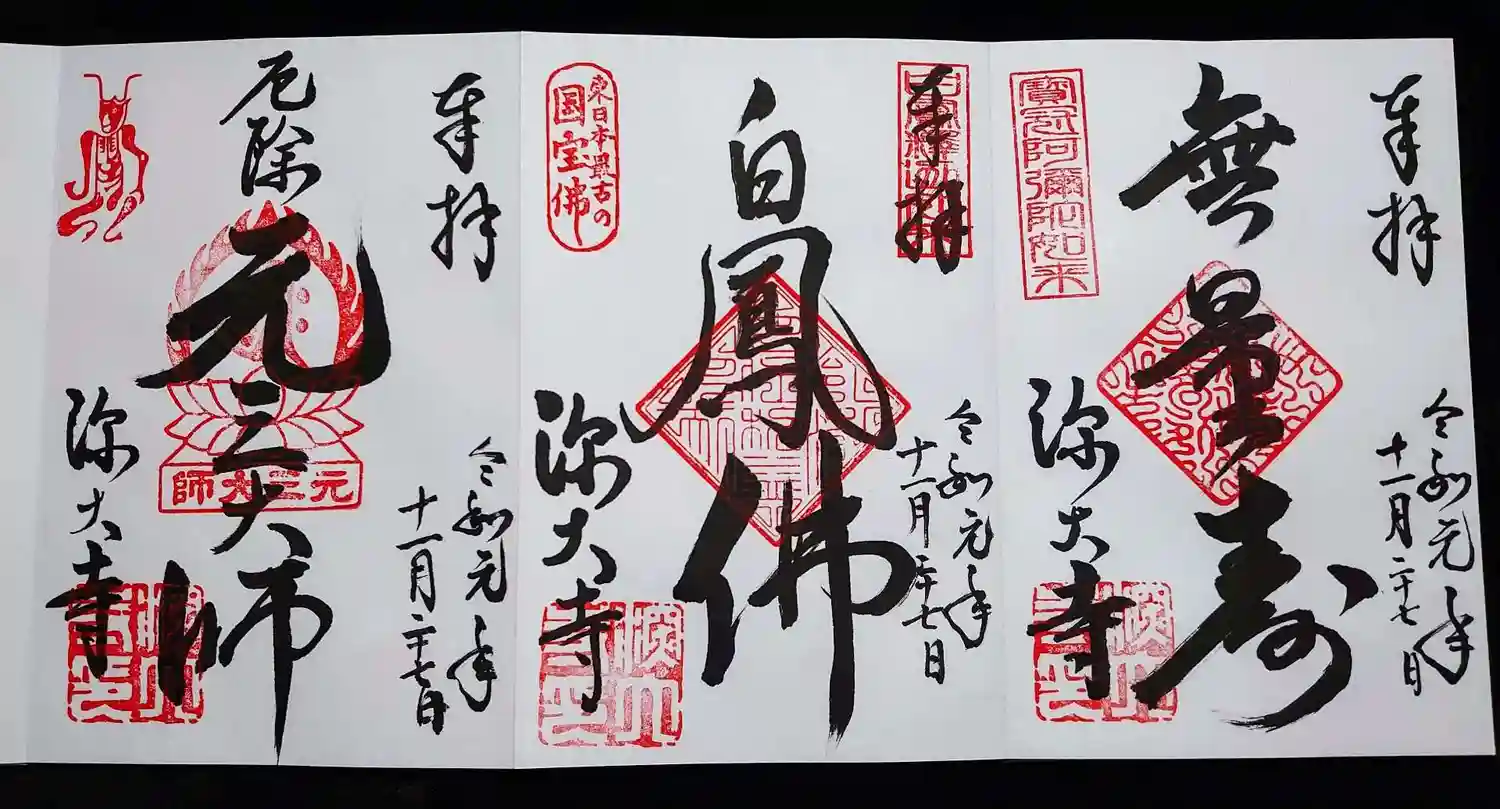 奉拝
無量寿
寳冠阿彌陀如来
令和元年
十一月二十七日
深大寺
奉拝
白鳳佛
東日本最古の
国宝佛
令和元年
十一月二十七日
深大寺
奉拝
厄除
元三大師
元三大師
令和元年
十一月二十七日
深大寺